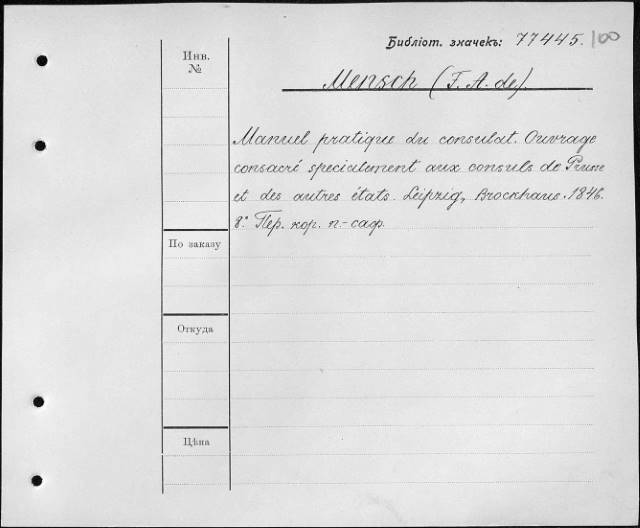 Библіот. значекъ: 77445. 100
Инв.
№
Mensch (F. A. de).
Manuel pratique du consulat. Ouvrage
consacré specialement aux consuls de Prusse
et des autres états. Leipzig, Brockhaus. 1846.
8°. Пер. кор. п.-саф.
По заказу
Откуда
Цѣна